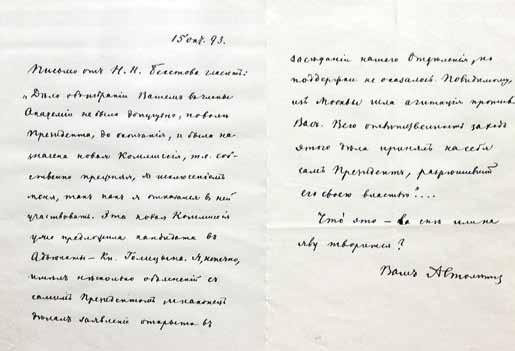 15 окт. 93.
Письмо отъ Н. Н. Бекетова гласитъ:
„Дѣло объ избраніи Вашемъ въ члены
Академіи не было допущено, по волѣ
Президента, до окончанія, и была на-
значена новая Коммиссія, т.е. соб-
ственно прежняя, за исключеніемъ
меня, такъ какъ я отказался въ ней
участвовать. Эта новая Коммиссія
уже предложила кандидата въ
Адъюнкты – Кн. Голицына. Я, конечно,
имѣлъ нѣсколько объясненій съ
самимъ Президентомъ, и наконецъ
дѣлалъ заявленіе открыто въ
засѣданіи нашего Отдѣленія, но
поддержки не оказалось. Повидимому,
изъ Москвы шла агитація противъ
Васъ. Всю отвѣтственность за ходъ
этого дѣла принялъ на себя
самъ Президентъ, разрѣшившій
его своею властью“...
Что́ это – во снѣ или на
яву творится?
Вашъ АСтолѣтов